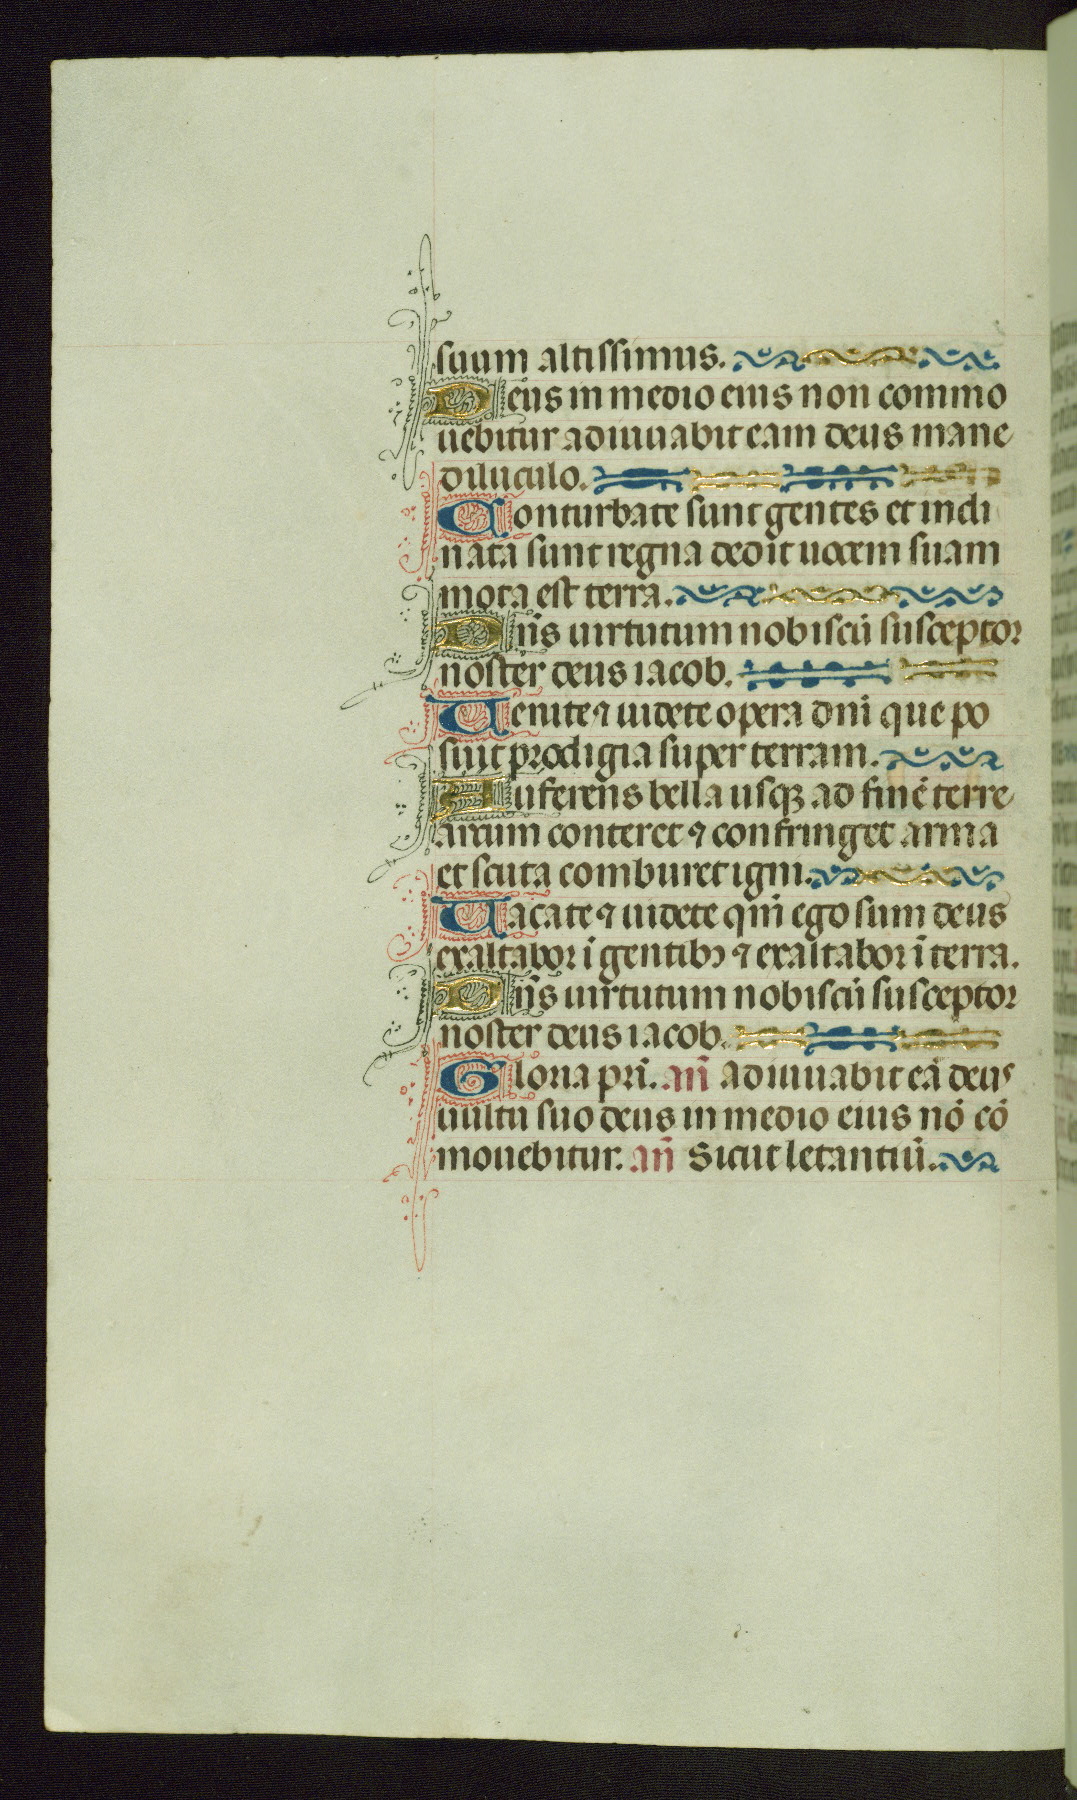 suum altissimus.
Deus in medio eius non commo
uebitur adiuuabit eam deus mane
diluculo.
Conturbate sunt gentes et incli
nata sunt regna dedit uocem suam
mota est terra.
Dñs uirtutum nobiscū susceptor
noster deus iacob.
Uenite ⁊ uidete opera dnī que po
suit prodigia super terram.
Auferens bella usqꝫ ad finē terre
arcum conteret ⁊ confringet arma
et scuta comburet igni.
Uacate ⁊ uidete qm̄ ego sum deus
exaltabor ī gentibꝫ ⁊ exaltabor ī terra.
Dñs uirtutum nobiscū susceptor
noster deus iacob.
Gloria pri̅. an̄ Adiuuabit eā deus
uultu suo deus in medio eius nō cō
mouebitur. an̄ Sicut letantiū.